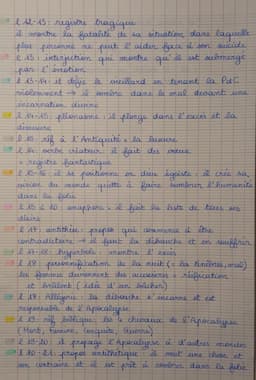 l 12-13 : registre tragique
il montre la fatalité de sa situation dans laquelle
plus personne ne peut l'aider face à son suicide
l 13 : interjection qui montre qu'il est submergé
par l'émotion
l 13-14 : il défie le vieillard en tenant la PdC
violemment → il sombre dans le mal devant une
incarnation divine
l 14-15 : pléonasme : il plonge dans l'excès et la
démesure
l 15 : réf à l'Antiquité + la luxure
l 16 : verbe créateur : il fait des vœux
+ registre fantastique
l 15-16 : il se positionne en dieu égoïste : il crée sa
vision du monde quitte à faire sombrer l'humanité
dans la folie
l 15 à 20 : anaphore : il fait la liste de tous ses
désirs
l 17 : antithèse : propos qui montre il être
contradictoire → il veut la débauche et en souffrir
l 17-18 : hyperbole : montre l'excès
l 18 : personnification de la nuit (= la ténèbres, mal)
les femmes deviennent des accessoires = réification
et brûlent (idée d'un bûcher)
l 19 : Allégorie : la débauche s'incarne et est
responsable de l'Apocalypse
l 19 : réf biblique : les 4 chevaux de l'Apocalypse
(Mort, Famine, Conquête, Guerre)
l 19-20 : il propage l'Apocalypse à d'autres mondes
l 20-21 : propos antithétique : il veut une chose et
son contraire et il est prêt à sombrer dans la folie